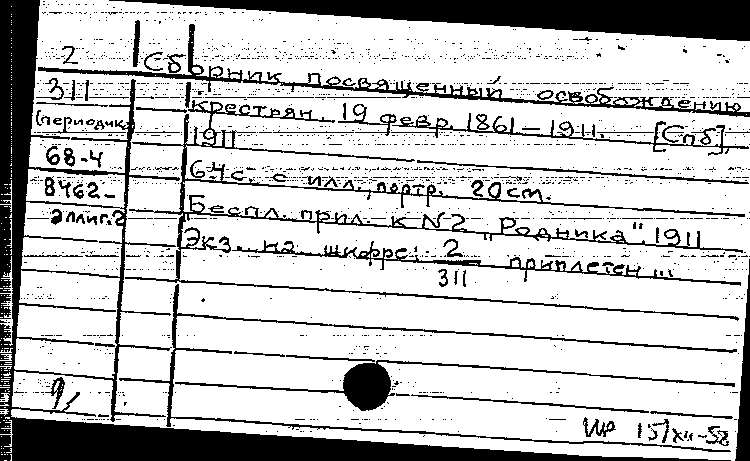 2
311
(периодика)
68-4
8462-
Сборник, посвященный освобождению
крестьян. 19 февр. 1861-1911. [Спб],
1911
64с. с илл., портр. 20см.
"Беспл. прил. к N2 "Родника". 1911
Экз. на шифре: 2
311
приплетен...
15/XII-58